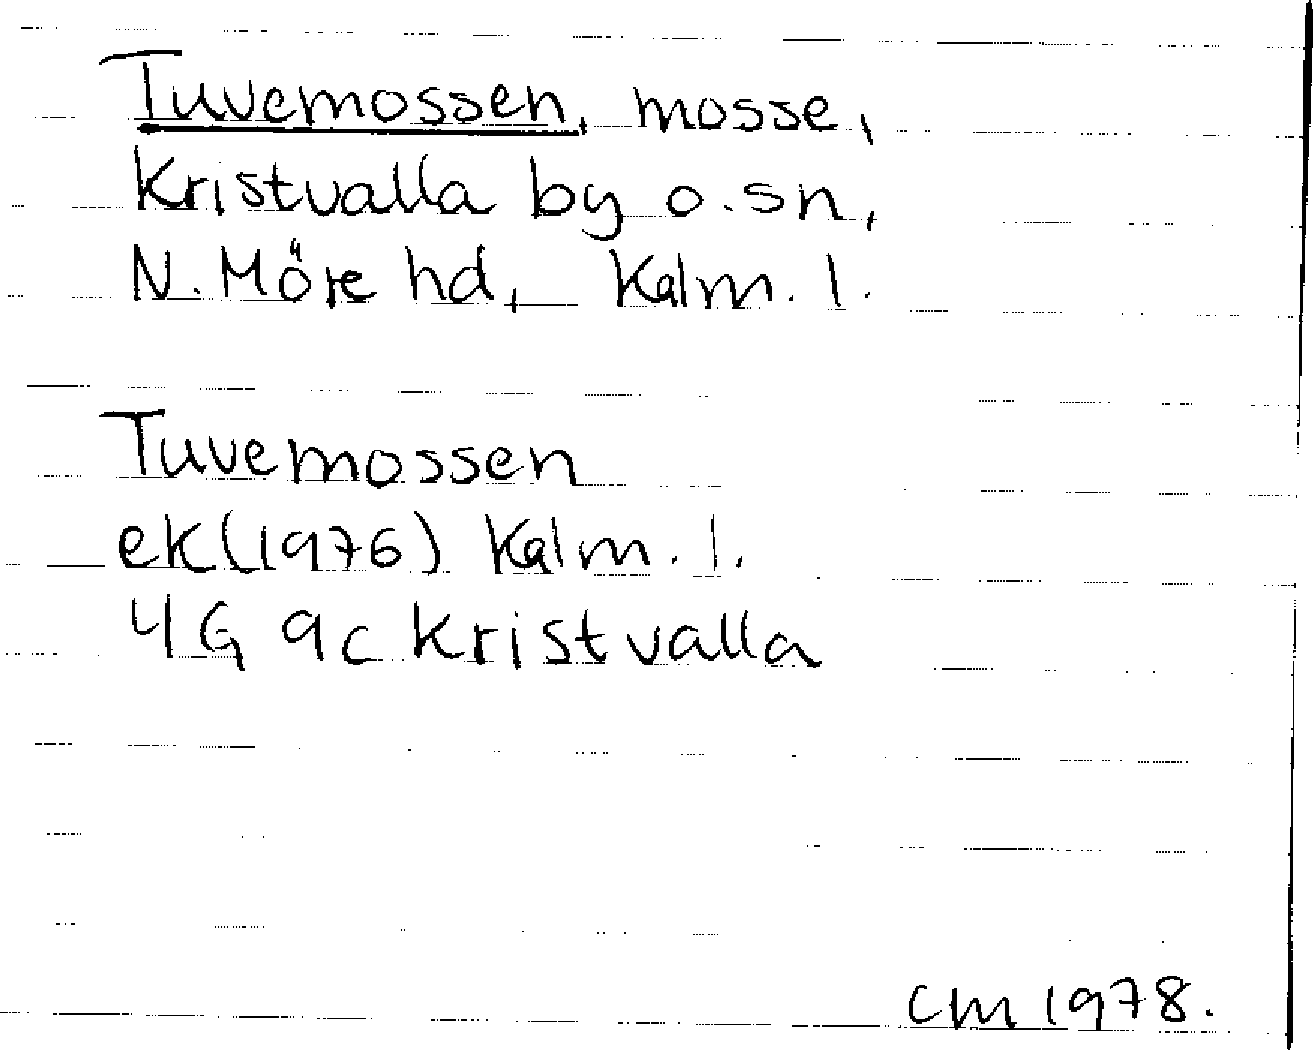 Tuvemossen, mosse,
Kristvalla by o. sn,
N. Möre hd, Kalm. l.
Tuvemossen
ek (1976) Kalm. l.
4G 9c Kristvalla
CM 1978.